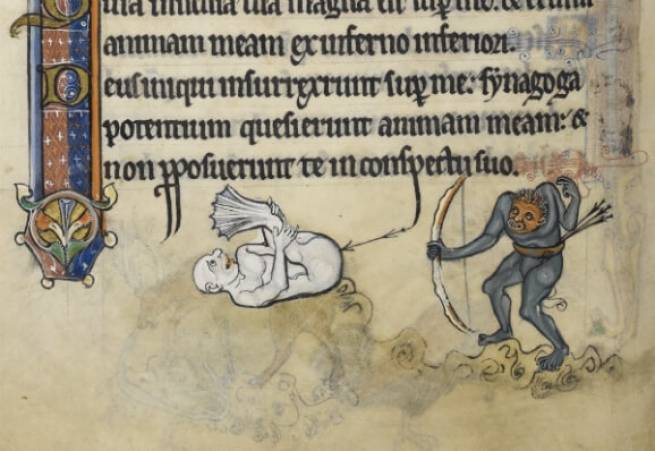 uia misericordia tua magna est sup me: & eruisti
animam meam ex inferno inferiori.
Deus iniqui insurrexerunt sup me: synagoga
potentium quesierunt animam meam: &
non pposuerunt te in conspectu suo.